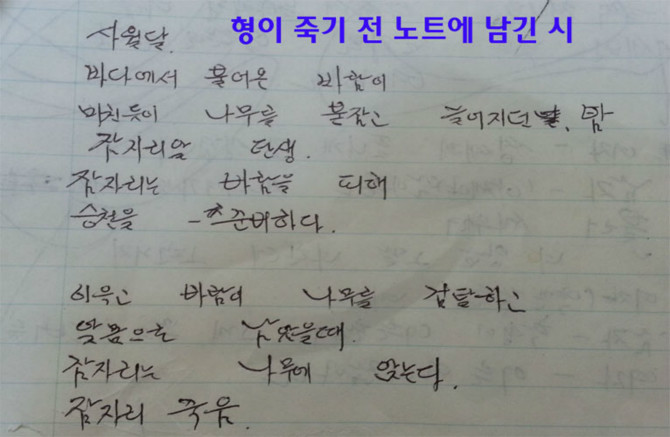 형이 죽기 전 노트에 남긴 시
사월달.
바다에서 불어온 바람이
미친듯이 나무를 붙잡고 늘어지던 밤
잠자리알 탄생.
잠자리는 바람을 피해
승천을 준비하다.
이윽고 바람이 나무를 겁탈하고
앓음으로 남았을때.
잠자리는 나무에 앉는다.
잠자리 죽음.